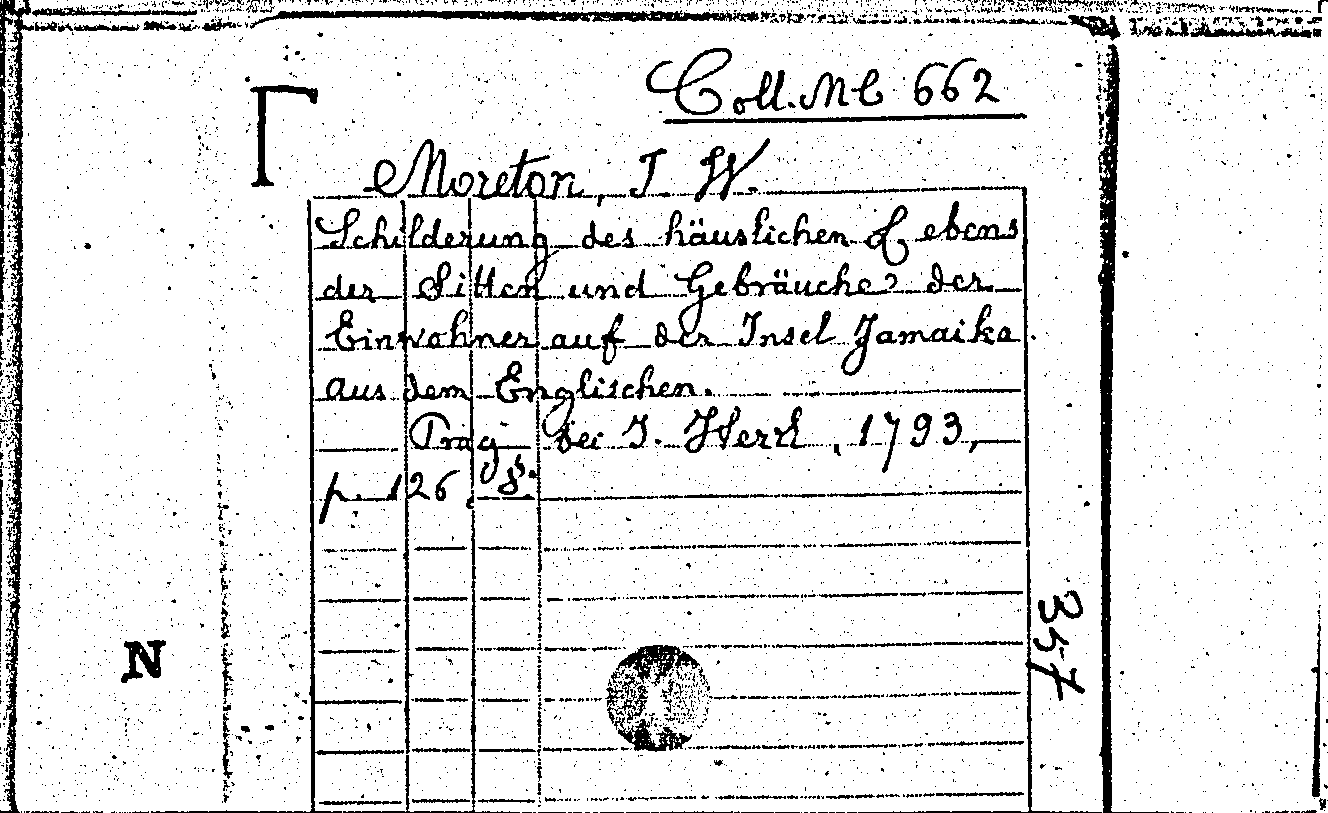 Coll. MC 662
Moreton, J W.
Schilderung des häuslichen Lebens
der Sitten und Gebräuche der
Einwohner auf der Insel Jamaika
aus dem Englischen.
Prag bei J. Herrl, 1793,
p. 126, 8.
357
N